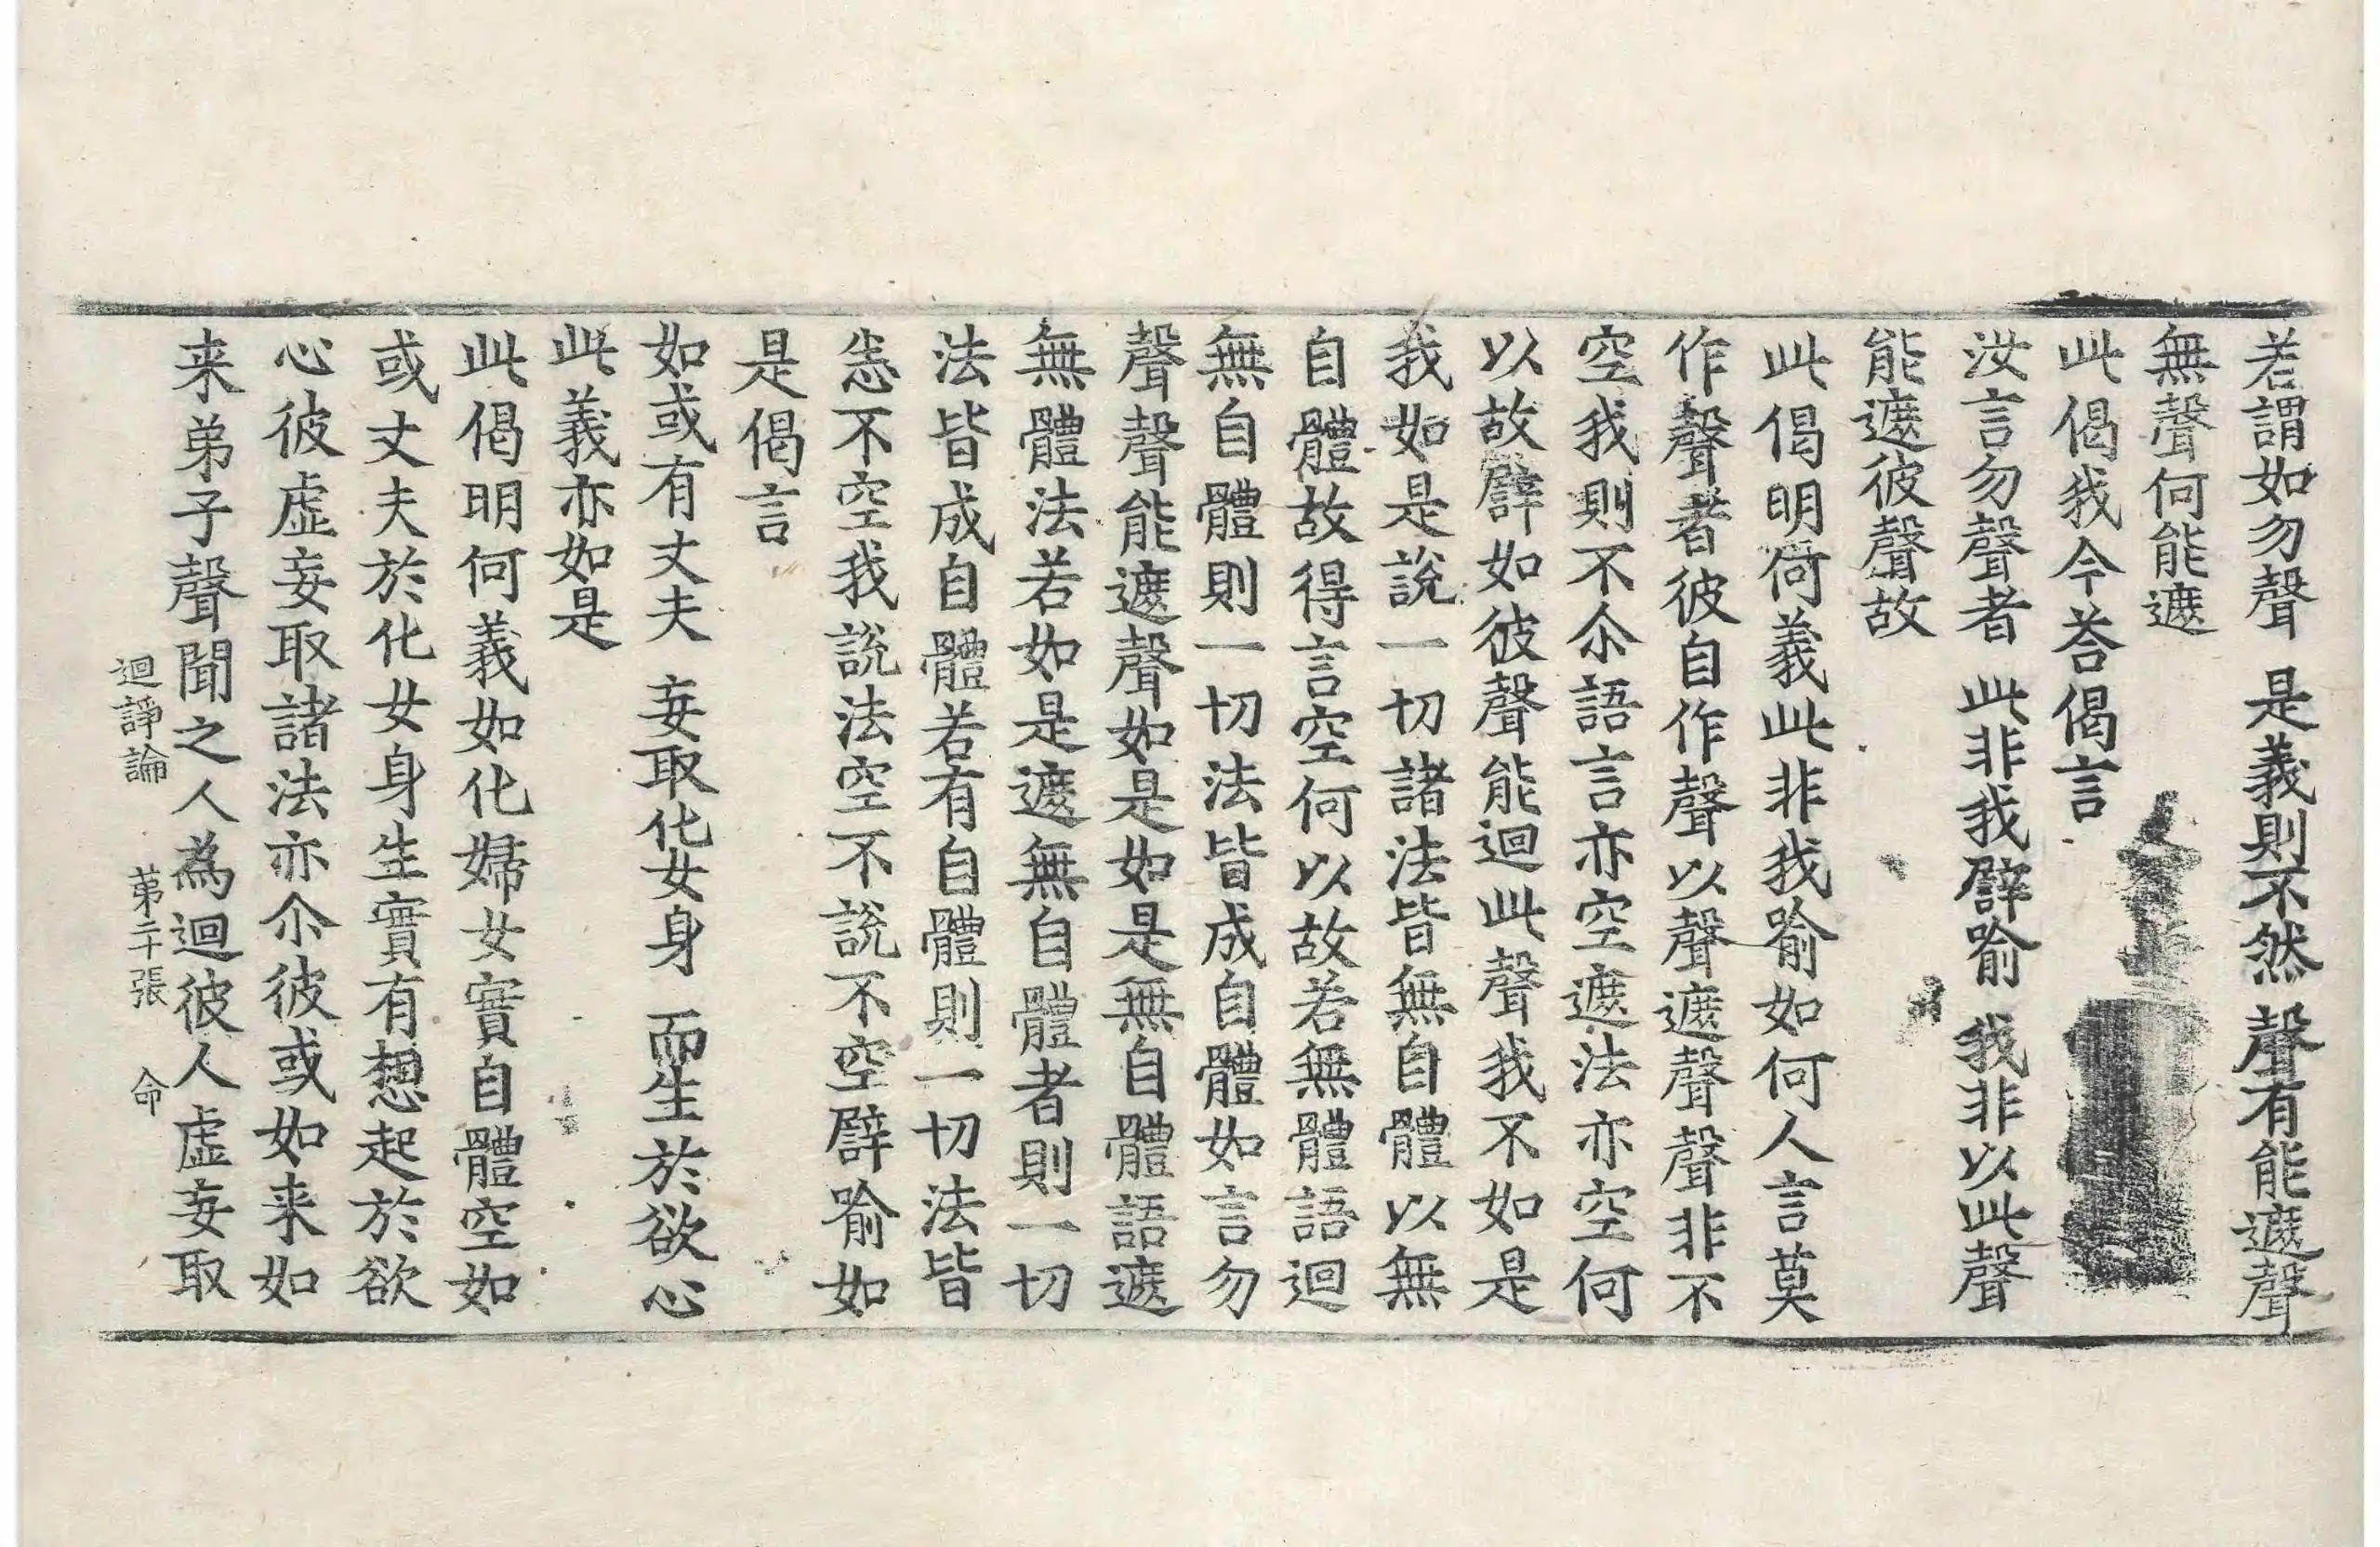 若謂如勿聲 是義則不然 聲有能遮聲
無聲何能遮
此偈我今荅偈言
汝言勿聲者 此非我譬喻 我非以此聲
能遮彼聲故
此偈明何義此非我喻如何人言莫
作聲者彼自作聲以聲遮聲聲非不
空我則不尒語言亦空遮法亦空何
以故譬如彼聲能迴此聲我不如是
我如是說一切諸法皆無自體以無
自體故得言空何以故若無體語迴
無自體則一切法皆成自體如言勿
聲聲能遮聲如是如是無自體語遮
無體法若如是遮無自體者則一切
法皆成自體若有自體則一切法皆
悉不空我說法空不說不空譬喻如
是偈言
如或有丈夫 妄取化女身 而生於欲心
此義亦如是
此偈明何義如化婦女實自體空如
或丈夫於化女身生實有想起於欲
心彼虛妄取諸法亦尒彼或如来如
来弟子聲聞之人為迴彼人虛妄取
迴諍論 第二十張 命